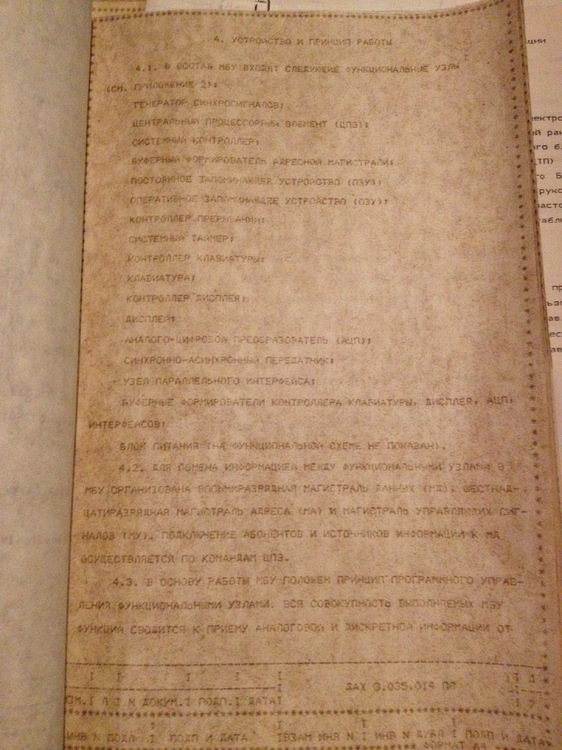 4. УСТРОЙСТВО И ПРИНЦИП РАБОТЫ
4.1. В СОСТАВ МБУ ВХОДЯТ СЛЕДУЮЩИЕ ФУНКЦИОНАЛЬНЫЕ УЗЛЫ
(СМ. ПРИЛОЖЕНИЕ 2):
ГЕНЕРАТОР СИНХРОСИГНАЛОВ;
ЦЕНТРАЛЬНЫЙ ПРОЦЕССОРНЫЙ ЭЛЕМЕНТ (ЦПЭ);
СИСТЕМНЫЙ КОНТРОЛЛЕР;
БУФЕРНЫЙ ФОРМИРОВАТЕЛЬ АДРЕСНОЙ МАГИСТРАЛИ;
ПОСТОЯННОЕ ЗАПОМИНАЮЩЕЕ УСТРОЙСТВО (ПЗУ);
ОПЕРАТИВНОЕ ЗАПОМИНАЮЩЕЕ УСТРОЙСТВО (ОЗУ);
КОНТРОЛЛЕР ПРЕРЫВАНИЙ;
СИСТЕМНЫЙ ТАЙМЕР;
КОНТРОЛЛЕР КЛАВИАТУРЫ;
КЛАВИАТУРА;
КОНТРОЛЛЕР ДИСПЛЕЯ;
ДИСПЛЕЙ;
АНАЛОГО-ЦИФРОВОЙ ПРЕОБРАЗОВАТЕЛЬ (АЦП);
СИНХРОННО-АСИНХРОННЫЙ ПЕРЕДАТЧИК;
УЗЕЛ ПАРАЛЛЕЛЬНОГО ИНТЕРФЕЙСА;
БУФЕРНЫЕ ФОРМИРОВАТЕЛИ КОНТРОЛЛЕРА КЛАВИАТУРЫ, ДИСПЛЕЯ, АЦП,
ИНТЕРФЕЙСОВ;
БЛОК ПИТАНИЯ (НА ФУНКЦИОНАЛЬНОЙ СХЕМЕ НЕ ПОКАЗАН).
4.2. ДЛЯ ОБМЕНА ИНФОРМАЦИЕЙ МЕЖДУ ФУНКЦИОНАЛЬНЫМИ УЗЛАМИ В
МБУ ОРГАНИЗОВАНА ВОСЬМИРАЗРЯДНАЯ МАГИСТРАЛЬ ДАННЫХ (МД), ШЕСТНАД-
ЦАТИРАЗРЯДНАЯ МАГИСТРАЛЬ АДРЕСА (МА) И МАГИСТРАЛЬ УПРАВЛЯЮЩИХ СИГ-
НАЛОВ (МУ). ПОДКЛЮЧЕНИЕ АБОНЕНТОВ И ИСТОЧНИКОВ ИНФОРМАЦИИ К МД
ОСУЩЕСТВЛЯЕТСЯ ПО КОМАНДАМ ЦПЭ.
4.3. В ОСНОВУ РАБОТЫ МБУ ПОЛОЖЕН ПРИНЦИП ПРОГРАММНОГО УПРАВ-
ЛЕНИЯ ФУНКЦИОНАЛЬНЫМИ УЗЛАМИ. ВСЯ СОВОКУПНОСТЬ ВЫПОЛНЯЕМЫХ МБУ
ФУНКЦИЙ СВОДИТСЯ К ПРИЕМУ АНАЛОГОВОЙ И ДИСКРЕТНОЙ ИНФОРМАЦИИ ОТ
ДАХ 3.035.014 ПС
N ДОКУМ.I ПОДП.I ДАТАI
ИНВ N ПОДЛ I ПОДП И ДАТА IВЗАМ ИНВ N I ИНВ N ДУБЛ I ПОДП И ДАТА